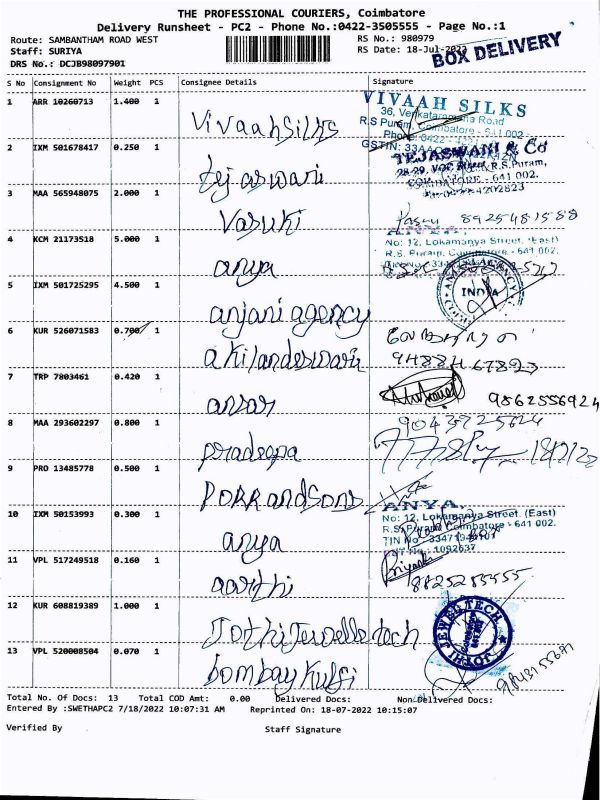 THE PROFESSIONAL COURIERS, Coimbatore
Delivery Runsheet - PC2 - Phone No.:0422-3505555 - Page No.:1
Route: SAMBANTHAM ROAD WEST
RS No.: 980979
Staff: SURIYA
RS Date: 18-Jul-2022
BOX DELIVERY
DRS No.: DCJB98097901
S No Consignment No Weight PCS Consignee Details Signature
1 ARR 10260713 1.400 1 VivaahSilks
VIVAAH SILKS
36, Venkataramana Road
R.S Puram, Coimbatore - 641 002
2 IXM 501678417 0.250 1 tejaswani
TEJASWANI & Co
R.S.Puram,
COIMBATORE - 641 002.
3 MAA 565948075 2.000 1 Vasuki
8925481588
4 KCM 21173518 5.000 1 anya
ANYA,
No: 12, Lokamanya Street, (East)
R.S. Puram, Coimbatore - 641 002.
5 IXM 501725295 4.500 1 anjani agency
INDIA
6 KUR 526071583 0.700 1 akilandeswari
9488467893
7 TRP 7803461 0.420 1 ansar
9862556924
8 MAA 293602297 0.800 1 pradeepa
9043725624
9 PRO 13485778 0.500 1 PORRandSons
10 IXM 50153993 0.300 1 anya
ANYA,
No: 12, Lokamanya Street. (East)
R.S.Puram, Coimbatore - 641 002.
TIN No
CST No: 1092637
11 VPL 517249518 0.160 1 aarthi
Priyanka
8825283555
12 KUR 608819389 1.000 1 Jothi Jewelle tech
JOTHI JEWEL TECH
13 VPL 520008504 0.070 1 bombay kulfi
Total No. Of Docs: 13 Total COD Amt: 0.00 Delivered Docs: Non Delivered Docs:
Entered By :SWETHAPC2 7/18/2022 10:07:31 AM Reprinted On: 18-07-2022 10:15:07
Verified By Staff Signature